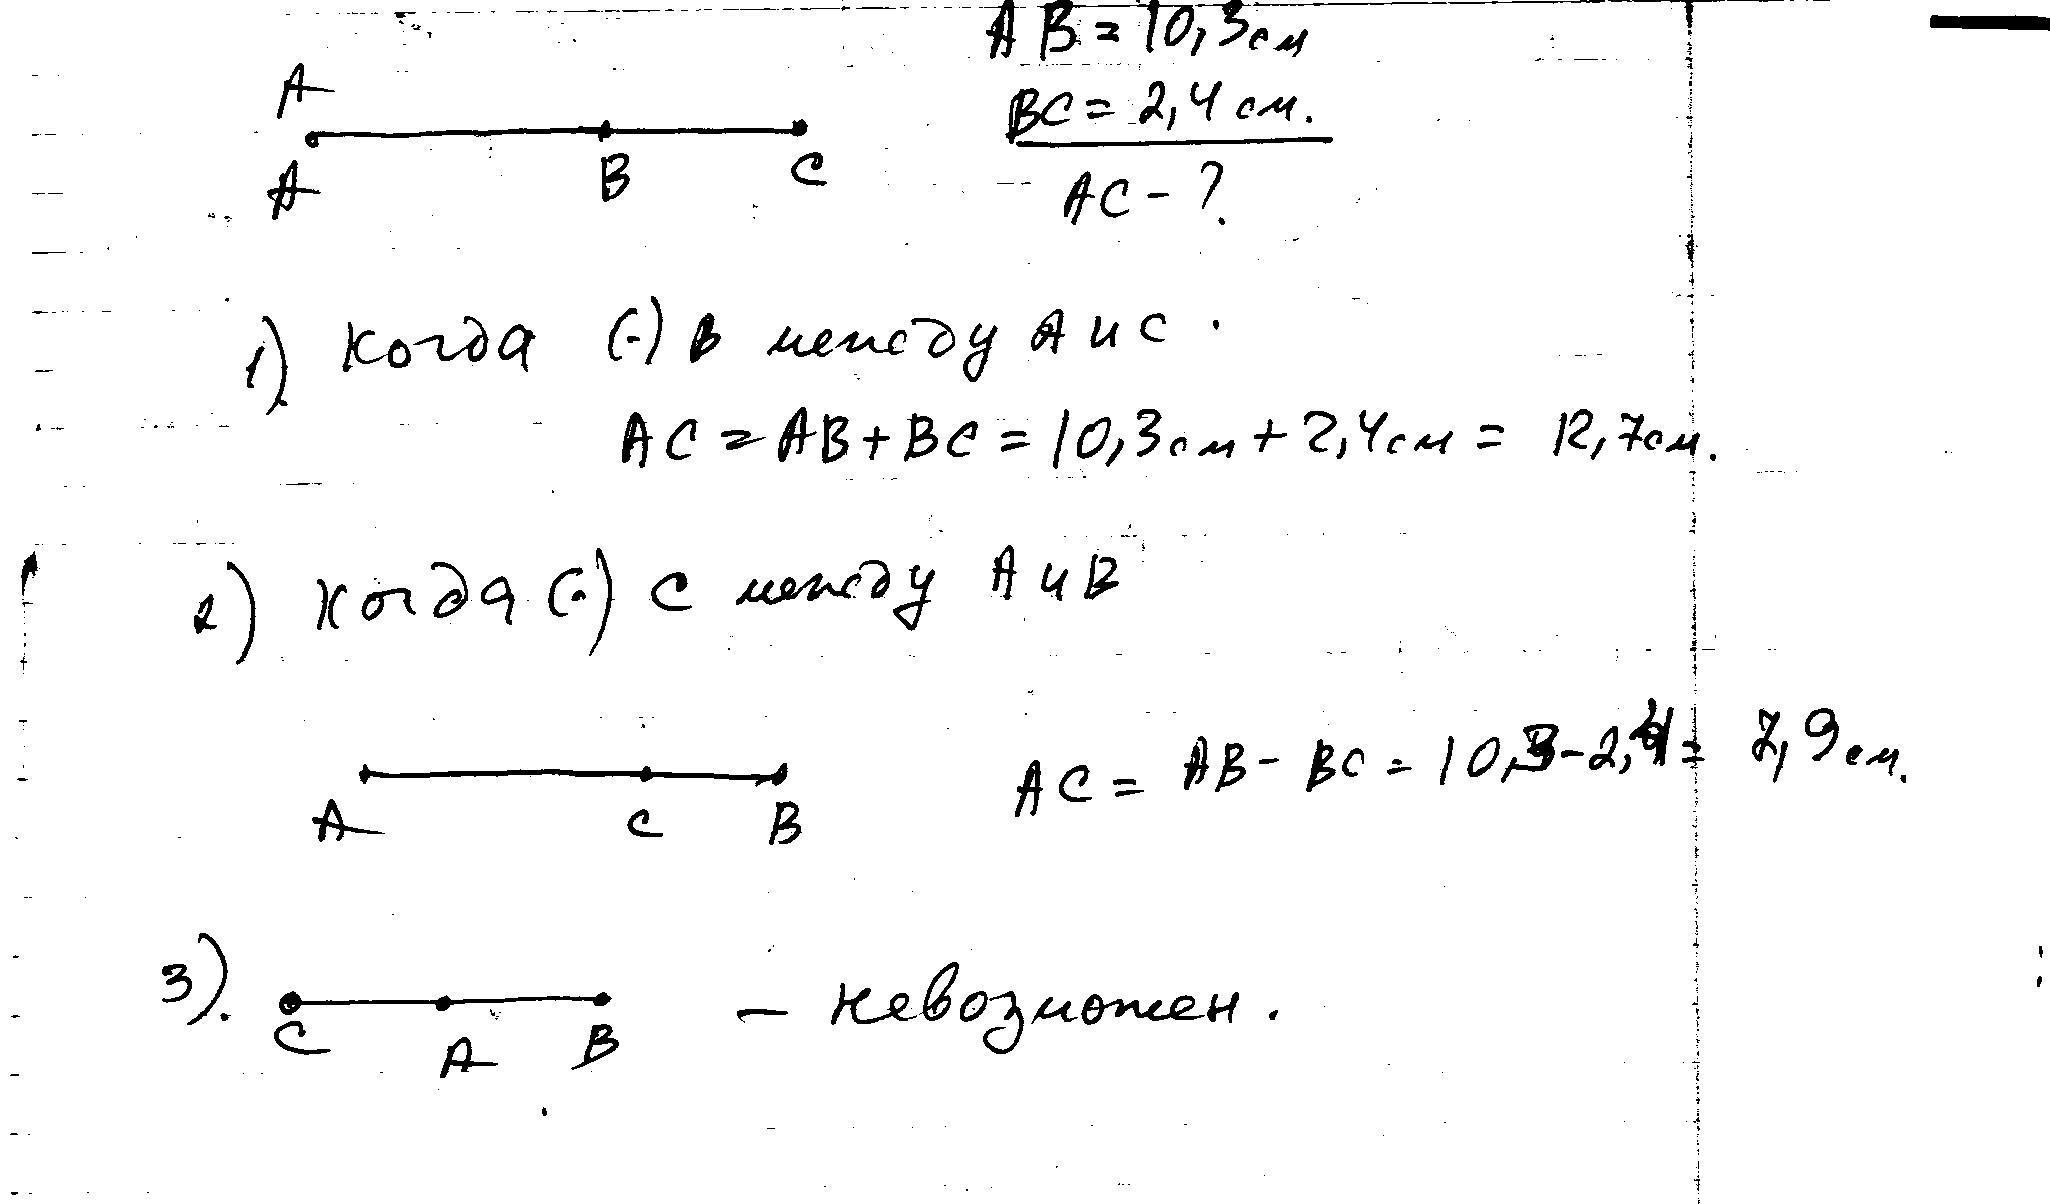 A
A B C
AB = 10,3 см
BC = 2,4 см.
AC - ?
1) Когда (·) В между А и С.
AC = AB + BC = 10,3 см + 2,4 см = 12,7 см.
2) Когда (·) С между А и В
A C B
AC = AB - BC = 10,3 - 2,4 = 7,9 см.
3).
C A B
- невозможен.